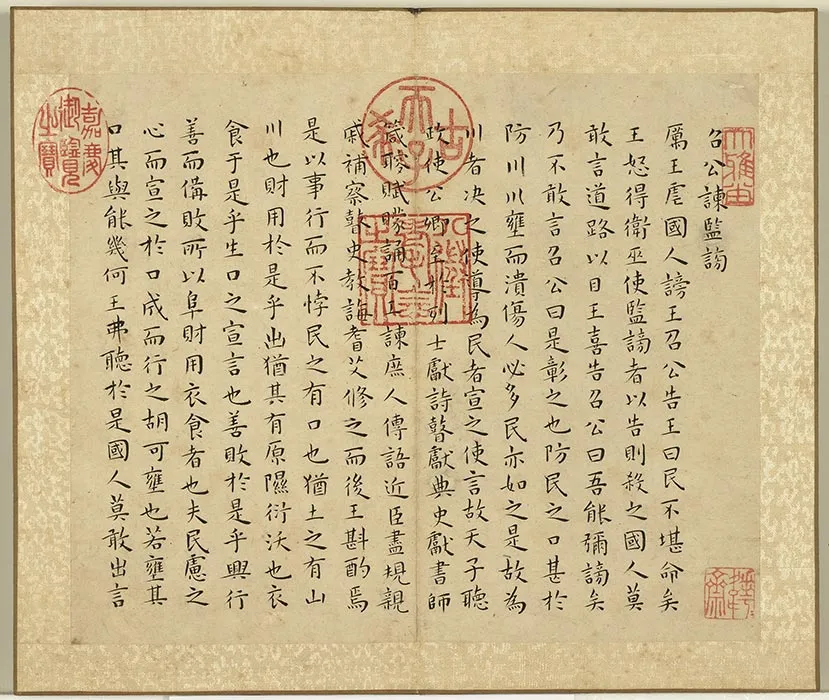 召公諫監謗
厲王虐國人謗王召公告王曰民不堪命矣
王怒得衛巫使監謗者以告則殺之國人莫
敢言道路以目王喜告召公曰吾能彌謗矣
乃不敢言召公曰是彰之也防民之口甚於
防川川壅而潰傷人必多民亦如之是故為
川者决之使導為民者宣之使言故天子聽
政使公卿至於列士獻詩瞽獻典史獻書師
箴瞍賦矇誦百工諫庶人傳語近臣盡規親
戚補察瞽史教誨耆艾修之而後王斟酌焉
是以事行而不悖民之有口也猶土之有山
川也財用於是乎出猶其有原隰衍沃也衣
食于是乎生口之宣言也善敗於是乎興行
善而備敗所以阜財用衣食者也夫民慮之
心而宣之於口成而行之胡可壅也若壅其
口其與能幾何王弗聽於是國人莫敢出言
古稀天子
八徵耄念之寶
嘉慶御覽之寶